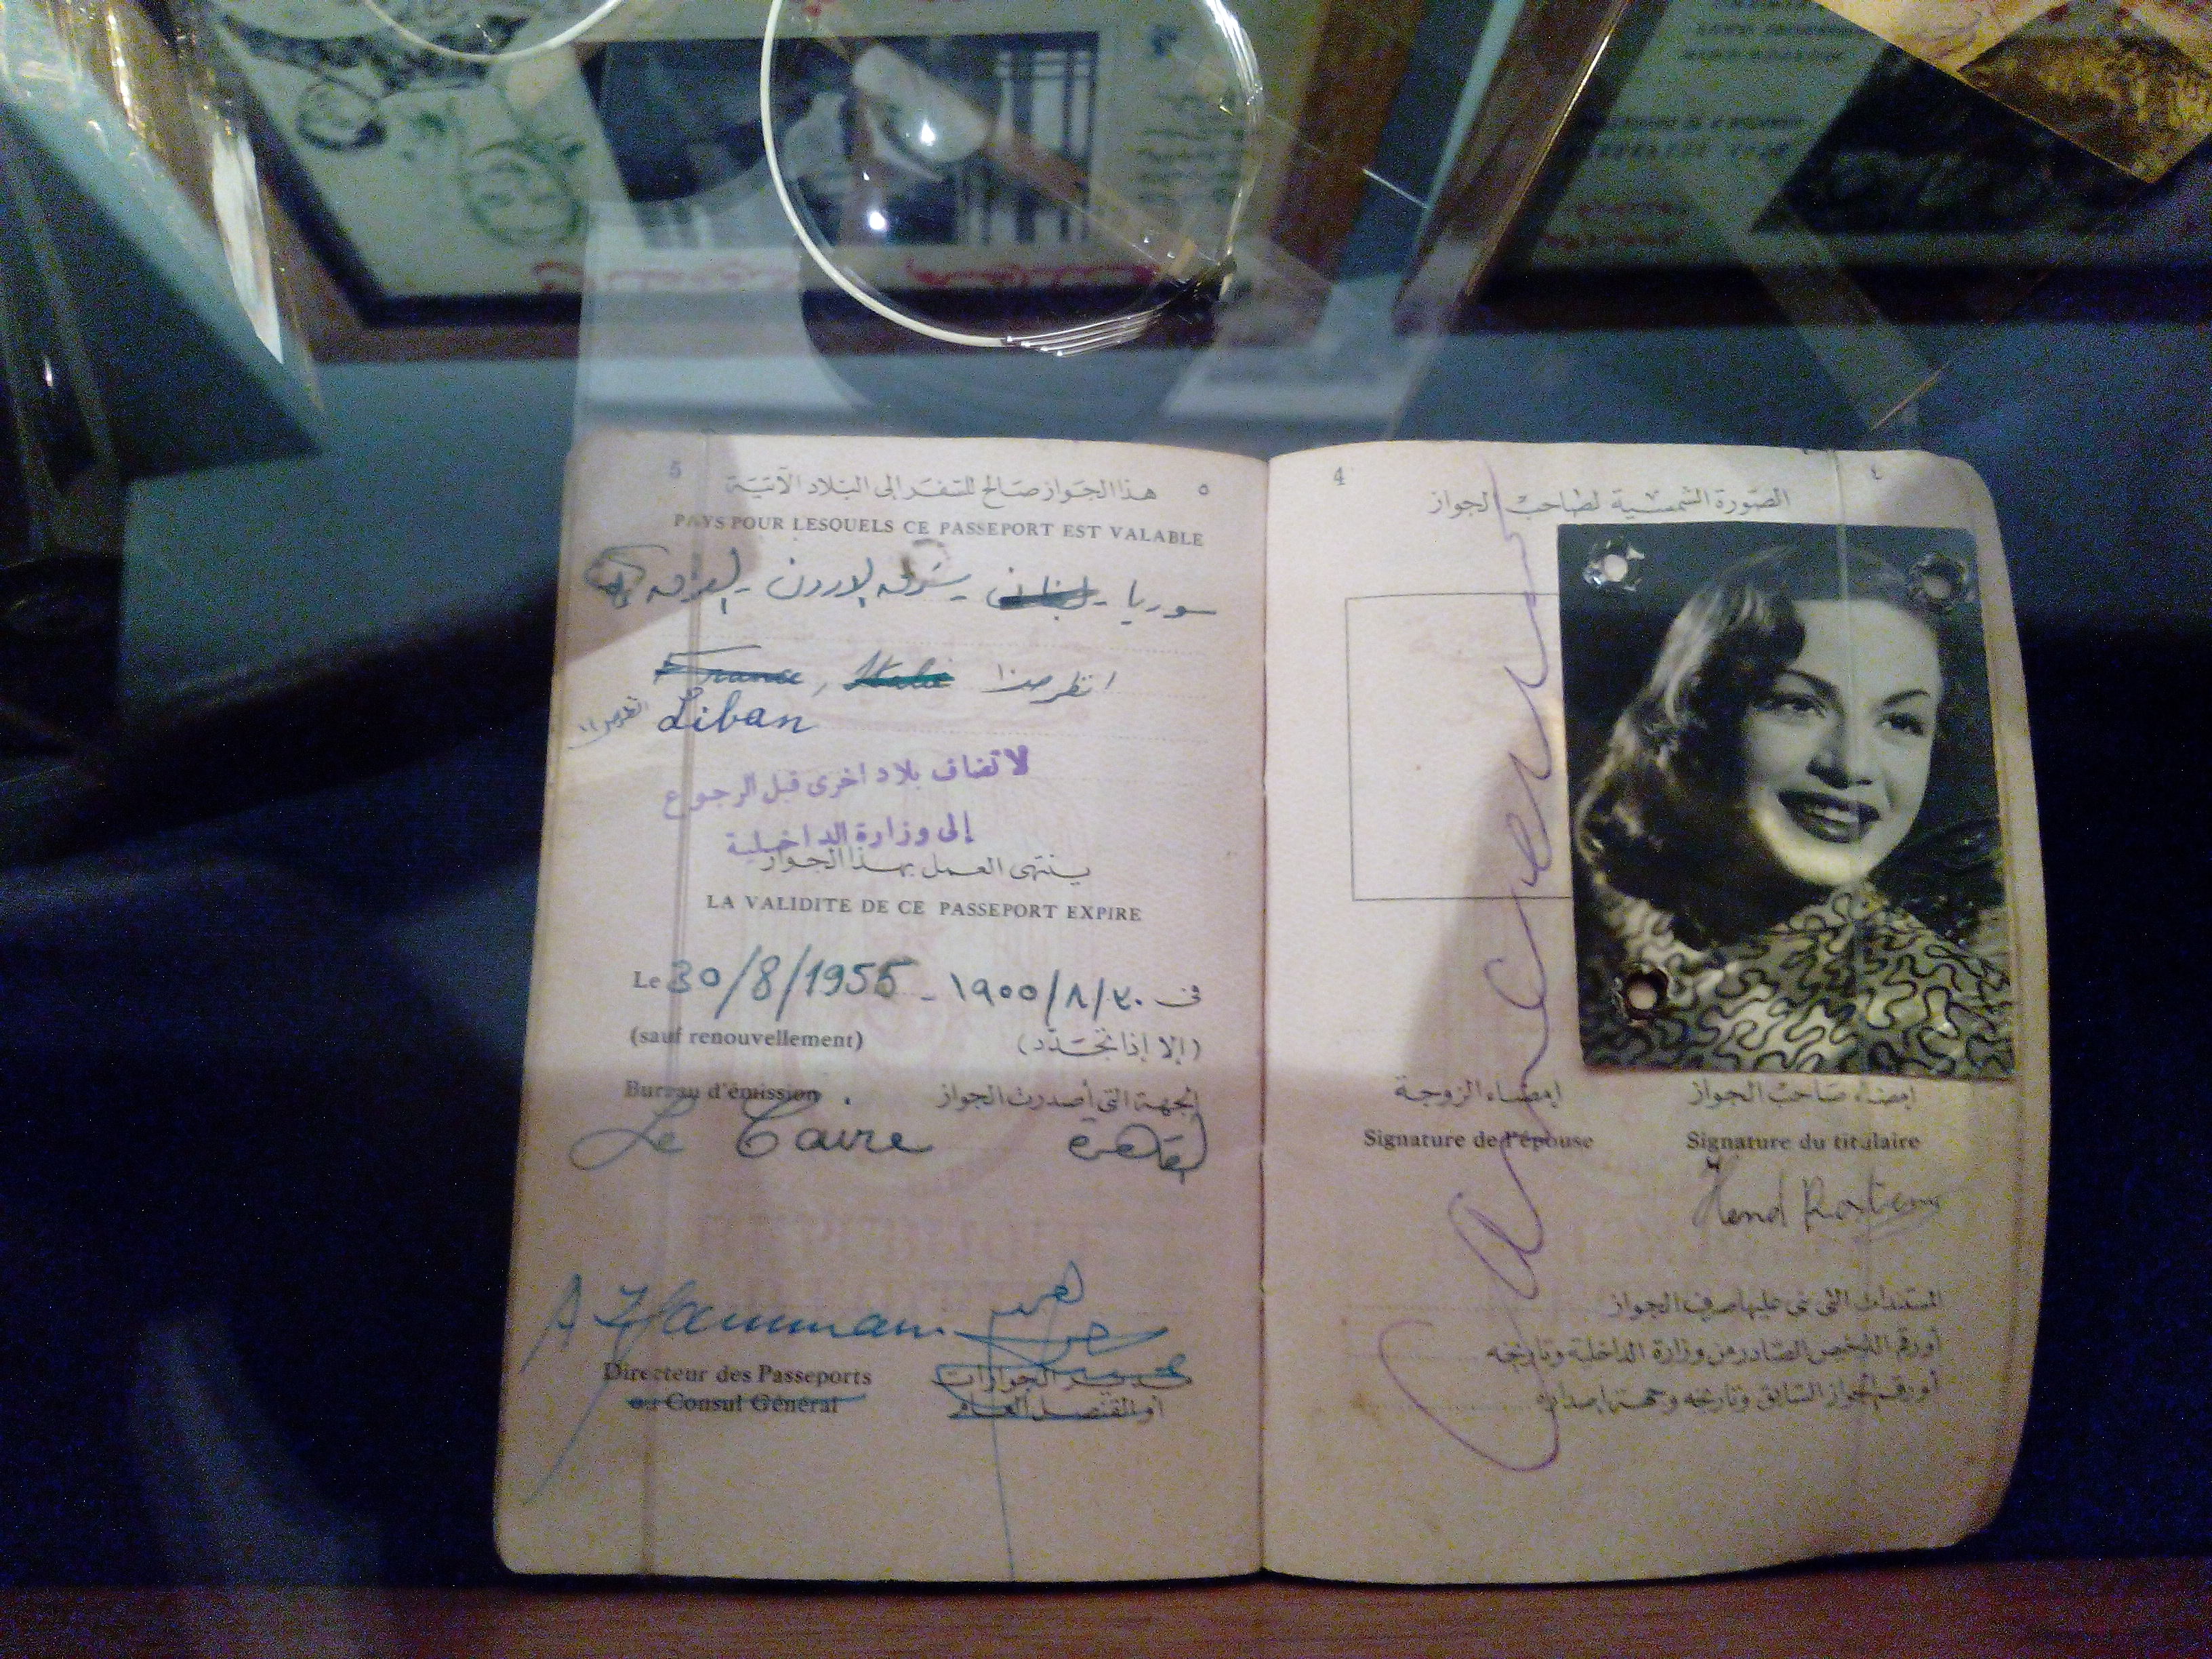 5 ٥
هذا الجواز صالح للسفر إلى البلاد الآتية
PAYS POUR LESQUELS CE PASSEPORT EST VALABLE
سوريا - لبنان - شرق الاردن - العراق
France, Italie انظر ص
Liban
لا تضاف بلاد اخرى قبل الرجوع
إلى وزارة الداخلية
ينتهى العمل بهذا الجواز
LA VALIDITE DE CE PASSEPORT EXPIRE
Le 30/8/1955 - ١٩٥٥/٨/٣٠ فى
(sauf renouvellement) (إلا إذا تجدد)
Bureau d'émission . الجهة التى أصدرت الجواز
Le Caire القاهرة
A Hammam
Directeur des Passeports مدير الجوازات
ou Consul Général أو القنصل العام
4 ٤
الصورة الشمسية لصاحب الجواز
إمضاء الزوجة إمضاء صاحب الجواز
Signature de l'épouse Signature du titulaire
Hend Rostem
المستندات التى بنى عليها صرف الجواز
أو رقم الترخيص الصادر من وزارة الداخلية وتاريخه
أو رقم الجواز السابق وتاريخه وجهة إصداره